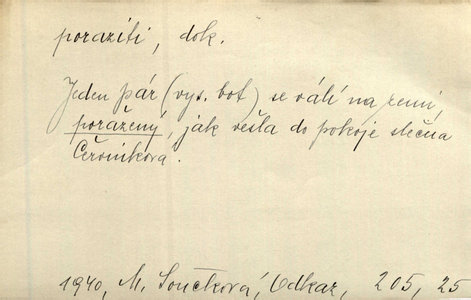 poraziti, dok.
Jeden pár (vys. bot) se válí na zemi,
poražený, jak vešla do pokoje slečna
Čeřovníkova.
1940, M. Součková, Odkaz, 205, 25